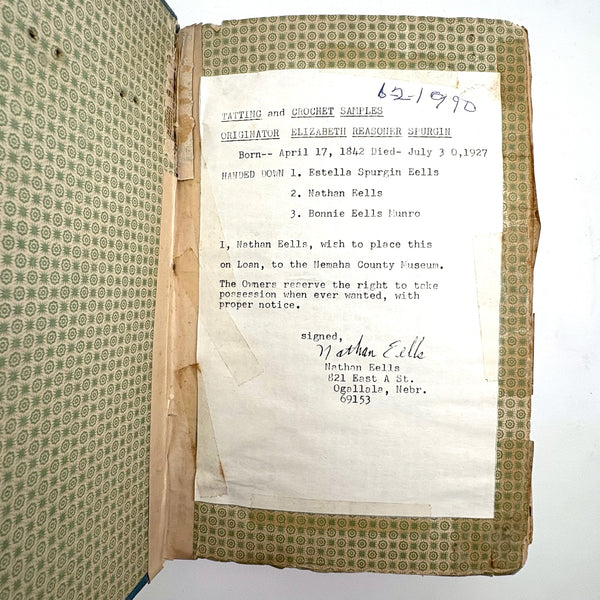 62-1990
TATTING and CROCHET SAMPLES
ORIGINATOR ELIZABETH REASONER SPURGIN
Born-- April 17, 1842 Died- July 3 0,1927
HANDED DOWN 1. Estella Spurgin Eells
2. Nathan Eells
3. Bonnie Eells Munro
1, Nathan Eells, wish to place this
on Loan, to the Nemaha County Museum.
The Owners reserve the right to take
possession when ever wanted, with
proper notice.
signed,
Nathan Eells
Nathan Eells
821 East A St.
Ogallala, Nebr.
69153